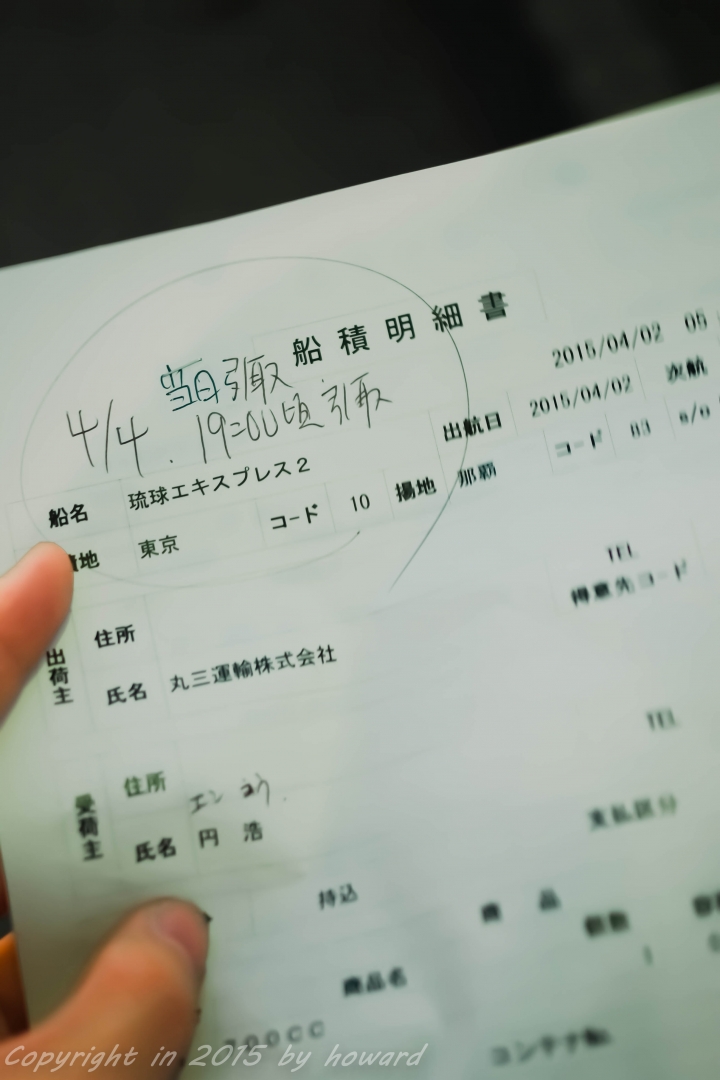 船積明細書
2015/04/02 05
当日引取
4/4. 19:00頃引取
出航日 2015/04/02 次航
船名 琉球エキスプレス2
地 東京 コード 10 揚地 那覇 コード 83 s/o
TEL
得意先コード
出荷主
住所
氏名 丸三運輸株式会社
TEL
受荷主
住所
エン コウ.
氏名 円 浩
支払区分
持込
商 品
個数
1
商品名
00CC
Copyright in 2015 by howard